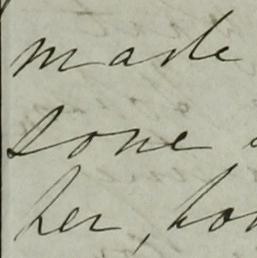 made
sone
her, ho